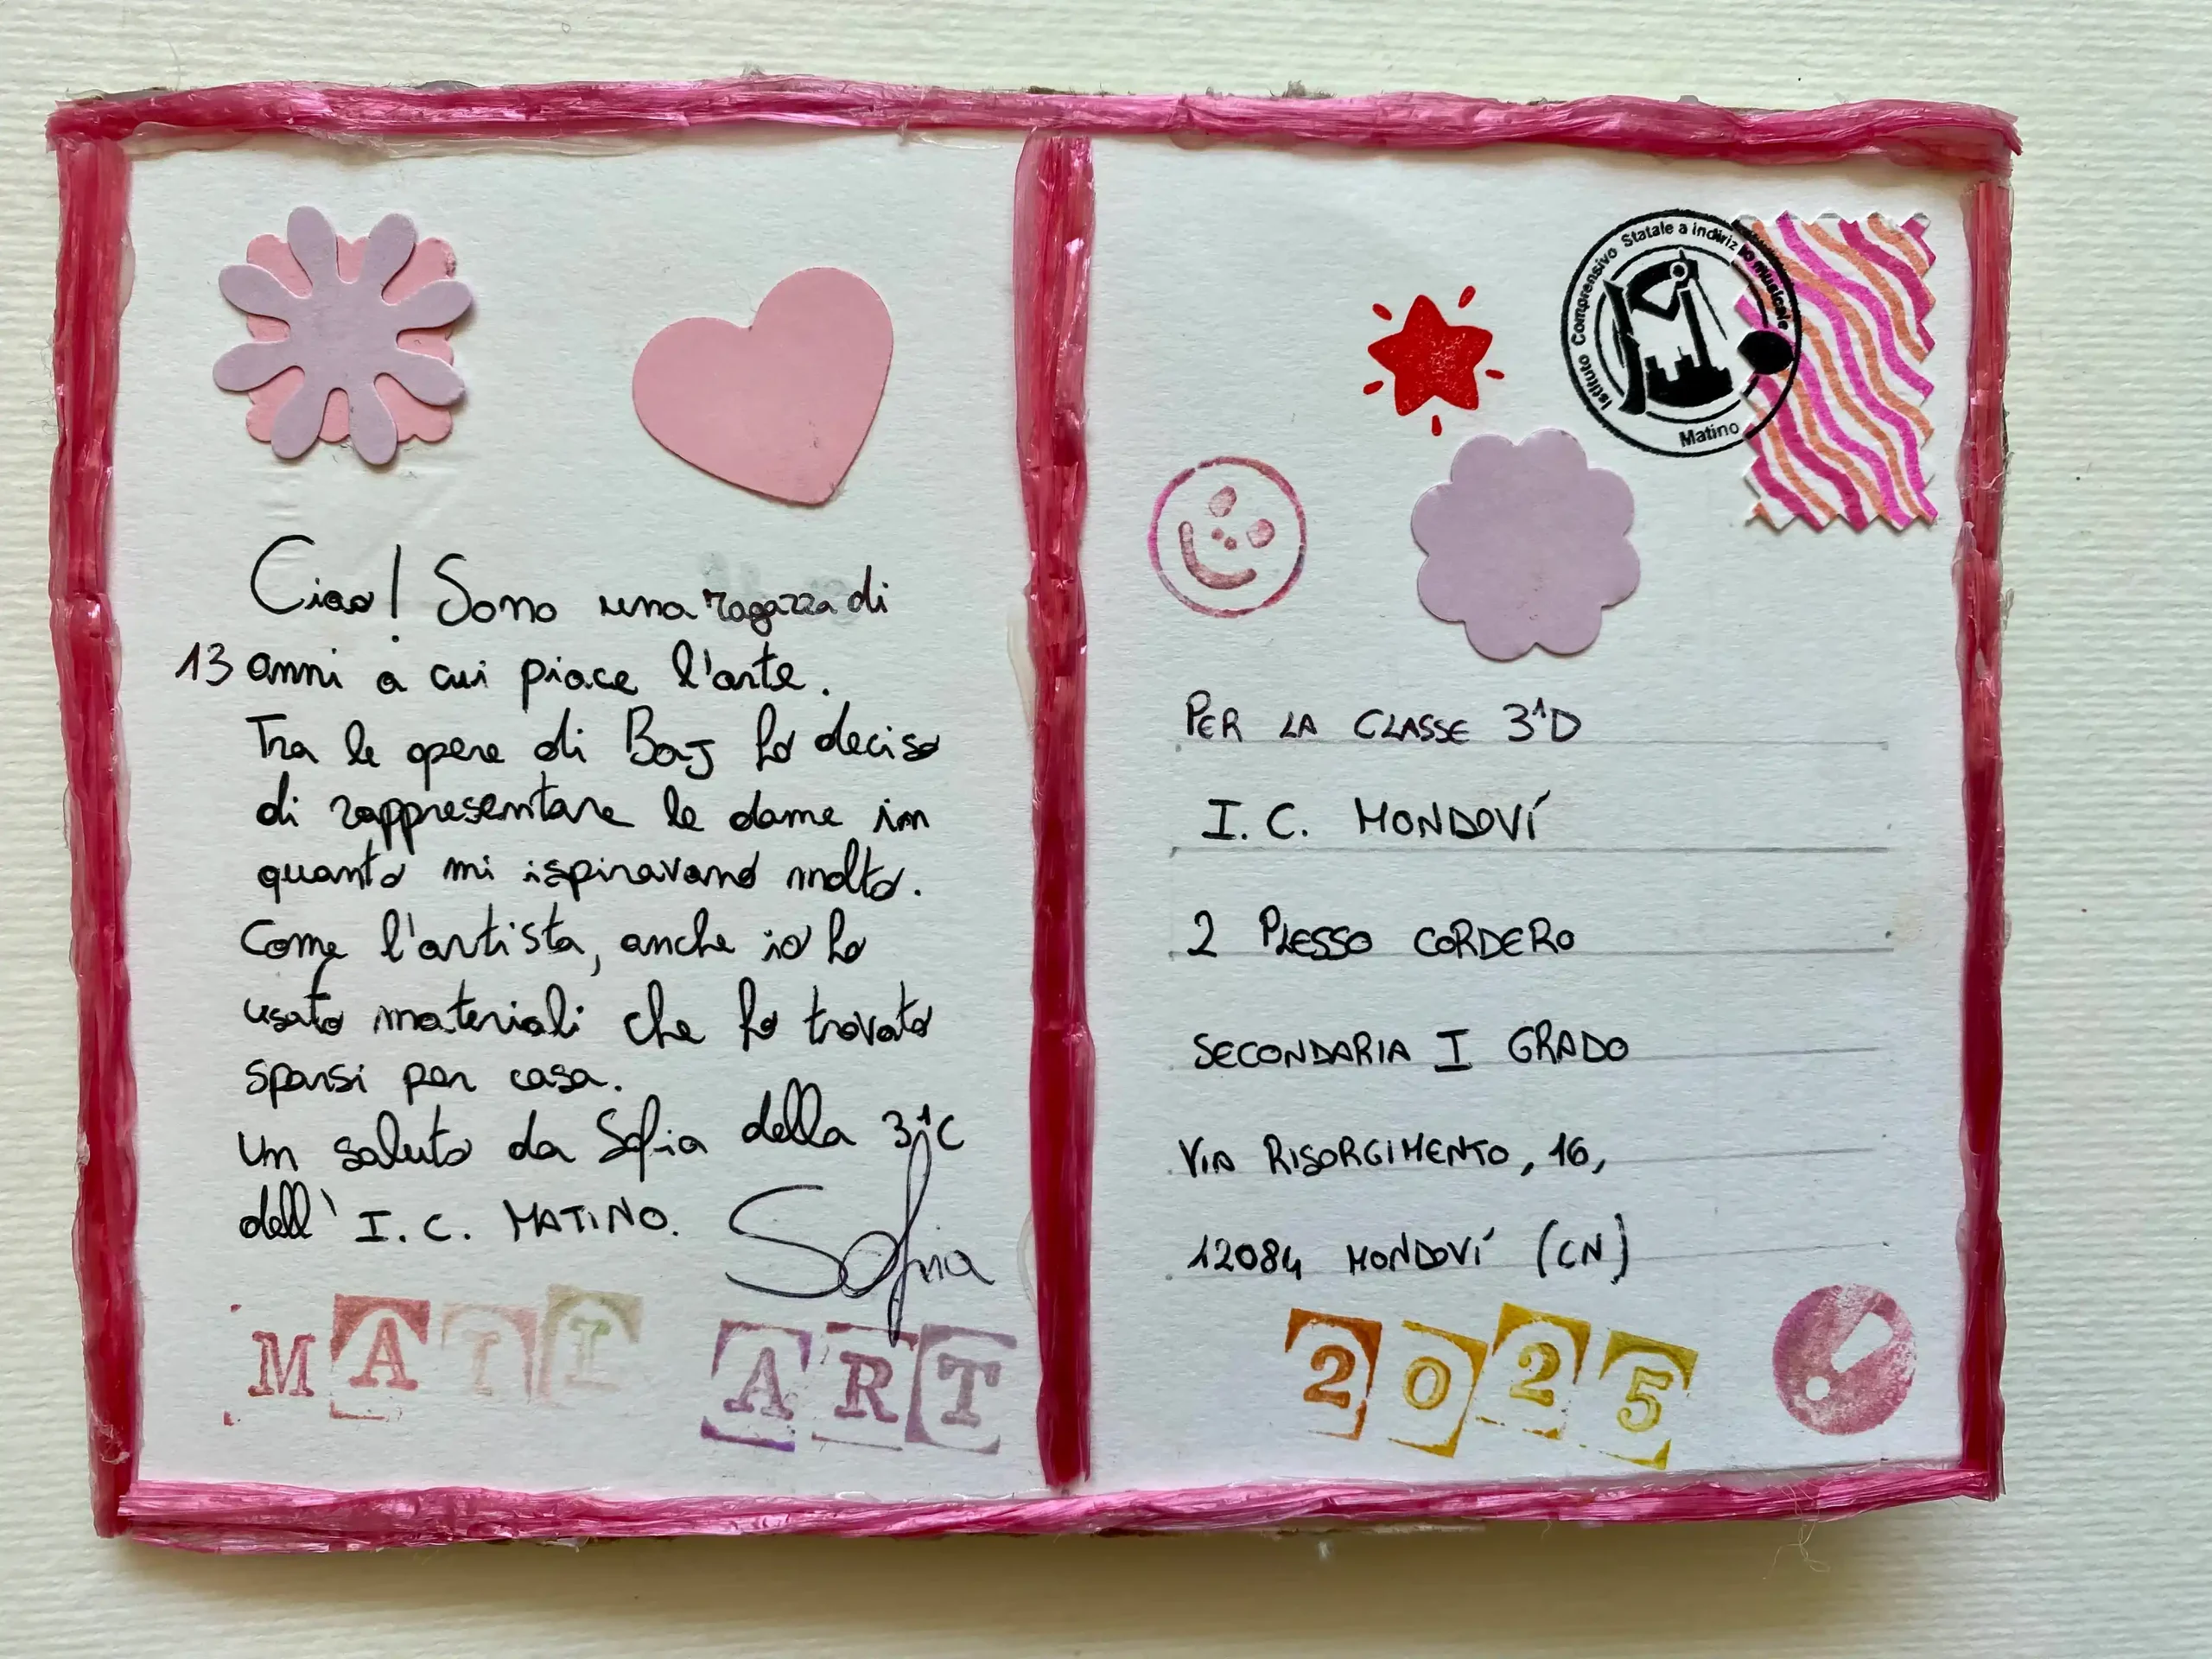 Ciao! Sono una ragazza di
13 anni a cui piace l'arte.
Tra le opere di BaJ ho deciso
di rappresentare le dame in
quanto mi ispiravano molto.
Come l'artista, anche io ho
usato materiali che ho trovato
sparsi per casa.
Un saluto da Sofia della 3^C
dell' I.C. MATINO.
Sofia
MAIL ART
Istituto Comprensivo Statale a indirizzo musicale
Matino
PER LA CLASSE 3^D
I.C. MONDOVÍ
2 PLESSO CORDERO
SECONDARIA I GRADO
VIA RISORGIMENTO, 16,
12084 MONDOVÍ (CN)
2025
!